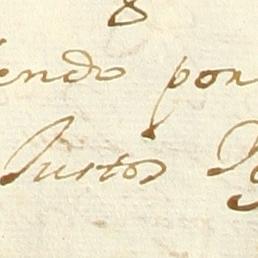 endo pon
Justos